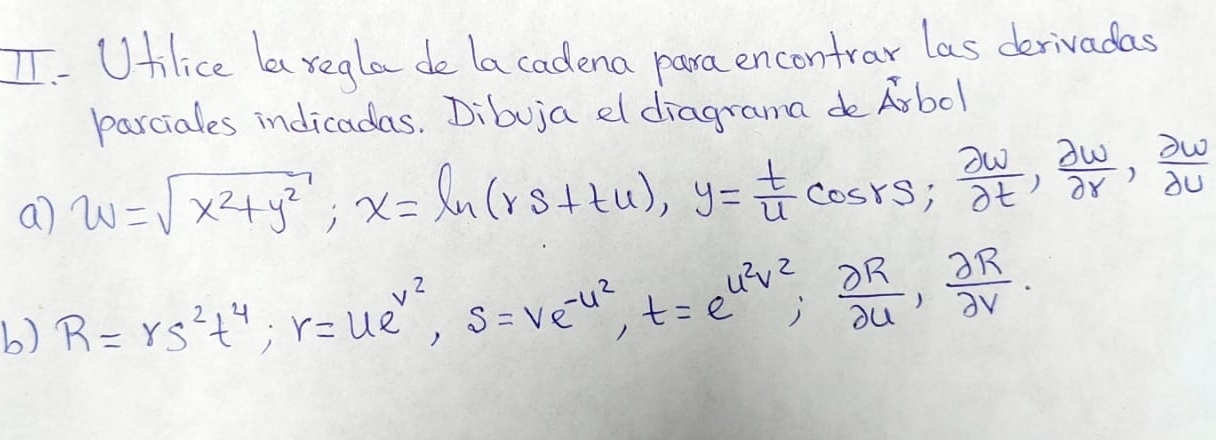 II.- Utilice la regla de la cadena para encontrar las derivadas
parciales indicadas. Dibuja el diagrama de Árbol
a) W=√(x²+y²) ; x= ln(rs+tu), y= t/u cosrs; ∂w/∂t, ∂w/∂r, ∂w/∂u
b) R= rs²t⁴; r=ue^(v²), s=ve^(-u²), t=e^(u²v²); ∂R/∂u, ∂R/∂v.